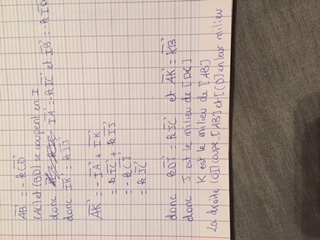 AB = -kCD
(AC) et (BD) se coupent en I
donc IA = kIC et IB = kID
donc IK = kIJ
AK = -IA + IK
= kIC + kIJ
= -k
= kJC
donc kDJ = kJC et AK = KB
donc J est le milieu de [DC]
K est le milieu de [AB]
La droite (OJ) coupe [AB] et [CD] en leur milieu